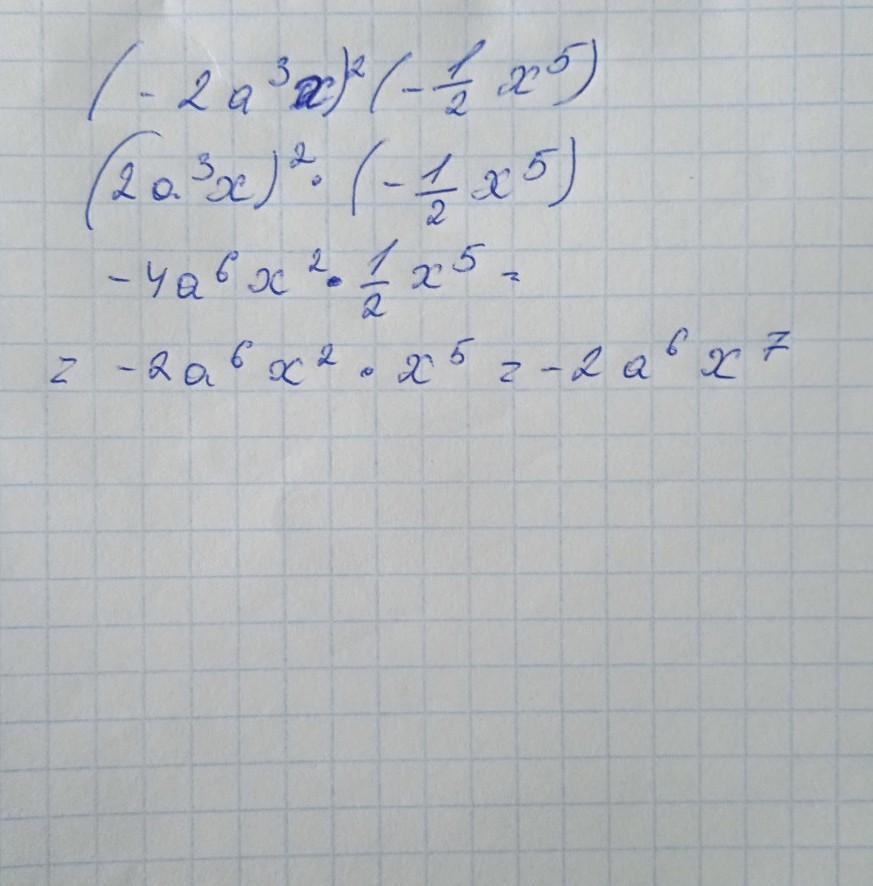 (-2a³x)²(-1/2 x⁵)
(2a³x)²·(-1/2 x⁵)
-4a⁶x²·1/2 x⁵ =
= -2a⁶x²·x⁵ = -2a⁶x⁷